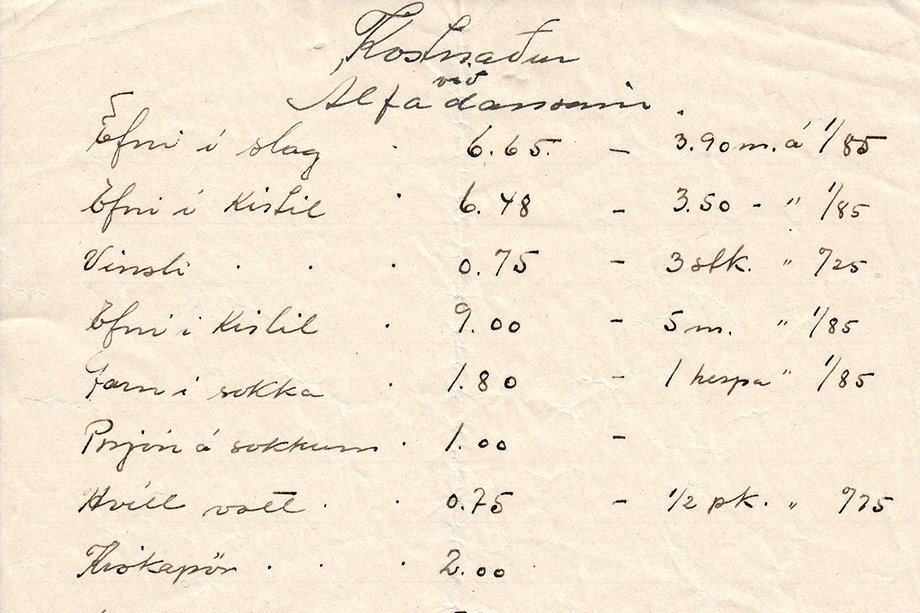 Kostnaður
við
Alfadansinn.
Efni í slag . 6.65. – 3.90 m. á 1/85
Efni í Kistil . 6.48 – 3.50 - " 1/85
Vinsli . . . 0.75 – 3 stk. " 0/25
Efni i Kistil . 9.00 – 5 m. " 1/85
Garn í sokka . 1.80 – 1 hespa " 1/85
Prjón á sokkum . 1.00 –
Hvítt vatt . . 0.75 – 1/2 pk. " 0/75
. . . 2.00